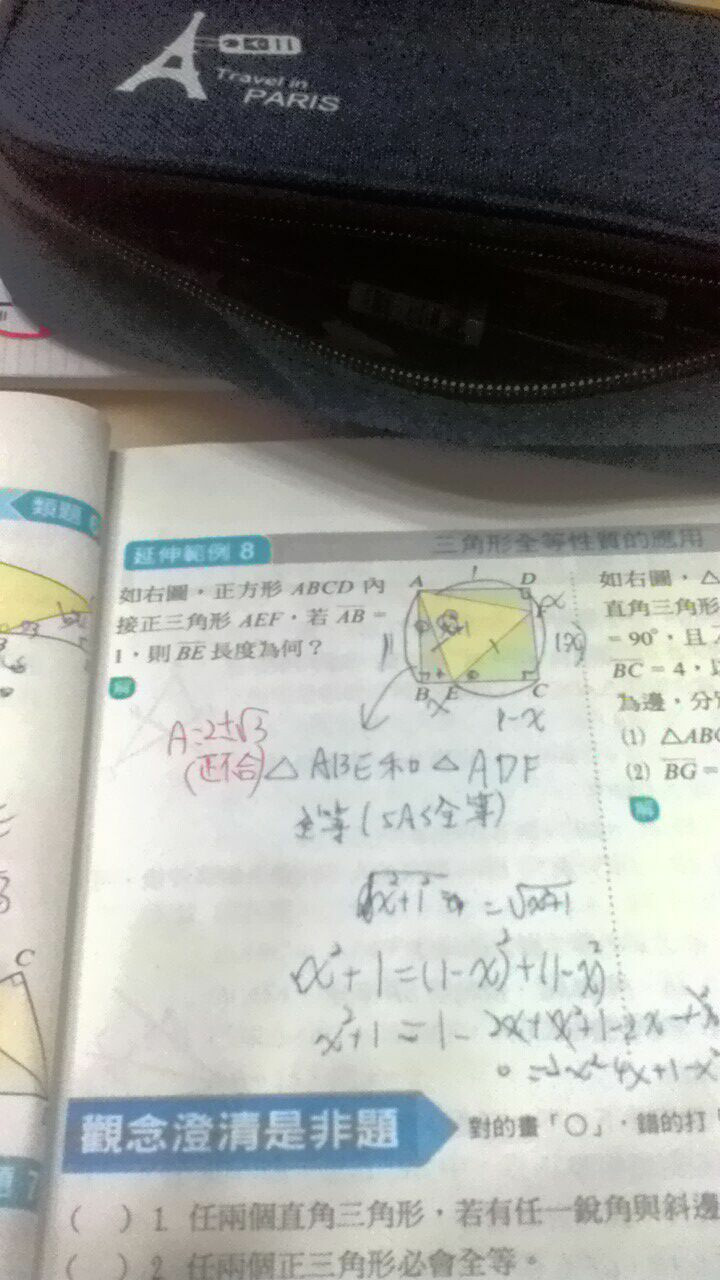 Travel in
PARIS
類題
延伸範例 8
三角形全等性質的應用
如右圖，正方形 ABCD 內
接正三角形 AEF，若 AB =
1，則 BE 長度為何？
解
A
D
F
B
E
C
1
x
1-x
A=2±√3
(正不合)
△ABE和△ADF
全等(SAS全等)
= √x²+1
x²+1=(1-x)²+(1-x)²
x²+1=1-2x+x²+1-2x+x²
如右圖，△
直角三角形
= 90°，且
BC = 4，以
為邊，分別
(1) △ABC
(2) BG =
解
C
觀念澄清是非題
對的畫「○」，錯的打「
( ) 1 任兩個直角三角形，若有任一銳角與斜邊
( ) 2 任兩個正三角形必會全等。